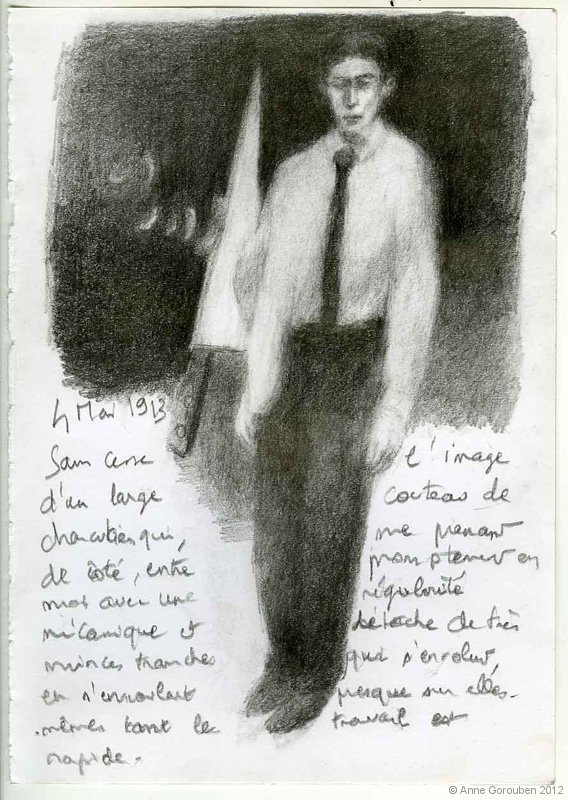 4 Mai 1913
Sans cesse l'image
d'un large couteau de
charcutier qui, me prenant
de côté, entre promptement en
moi avec une régularité
mécanique et détache de très
minces tranches qui s'envolent,
en s'enroulant presque sur elles-
-mêmes tant le travail est
rapide.
© Anne Gorouben 2012